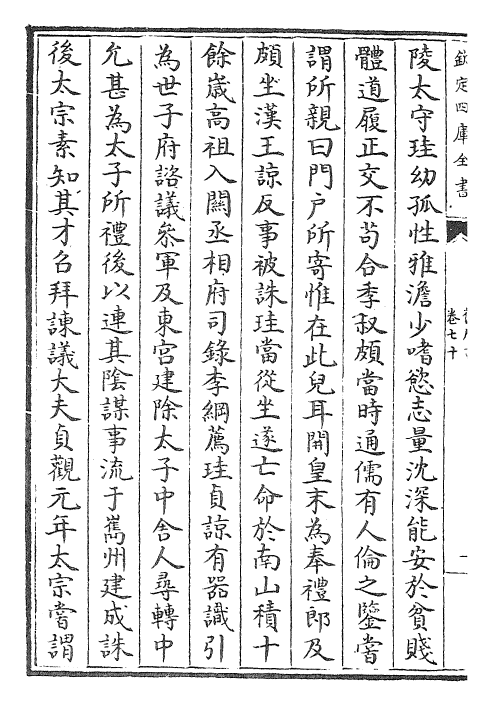 欽定四庫全書
卷七十
陵太守珪幼孤性雅澹少嗜慾志量沈深能安於貧賤
體道履正交不茍合季叔頗當時通儒有人倫之鑒嘗
謂所親曰門户所寄惟在此兒耳開皇末為奉禮郎及
頗坐漢王諒反事被誅珪當從坐遂亡命於南山積十
餘歲高祖入關丞相府司錄李綱薦珪貞諒有器識引
為世子府諮議叅軍及東宮建除太子中舍人尋轉中
允甚為太子所禮後以連其陰謀事流于巂州建成誅
後太宗素知其才召拜諫議大夫貞觀元年太宗嘗謂